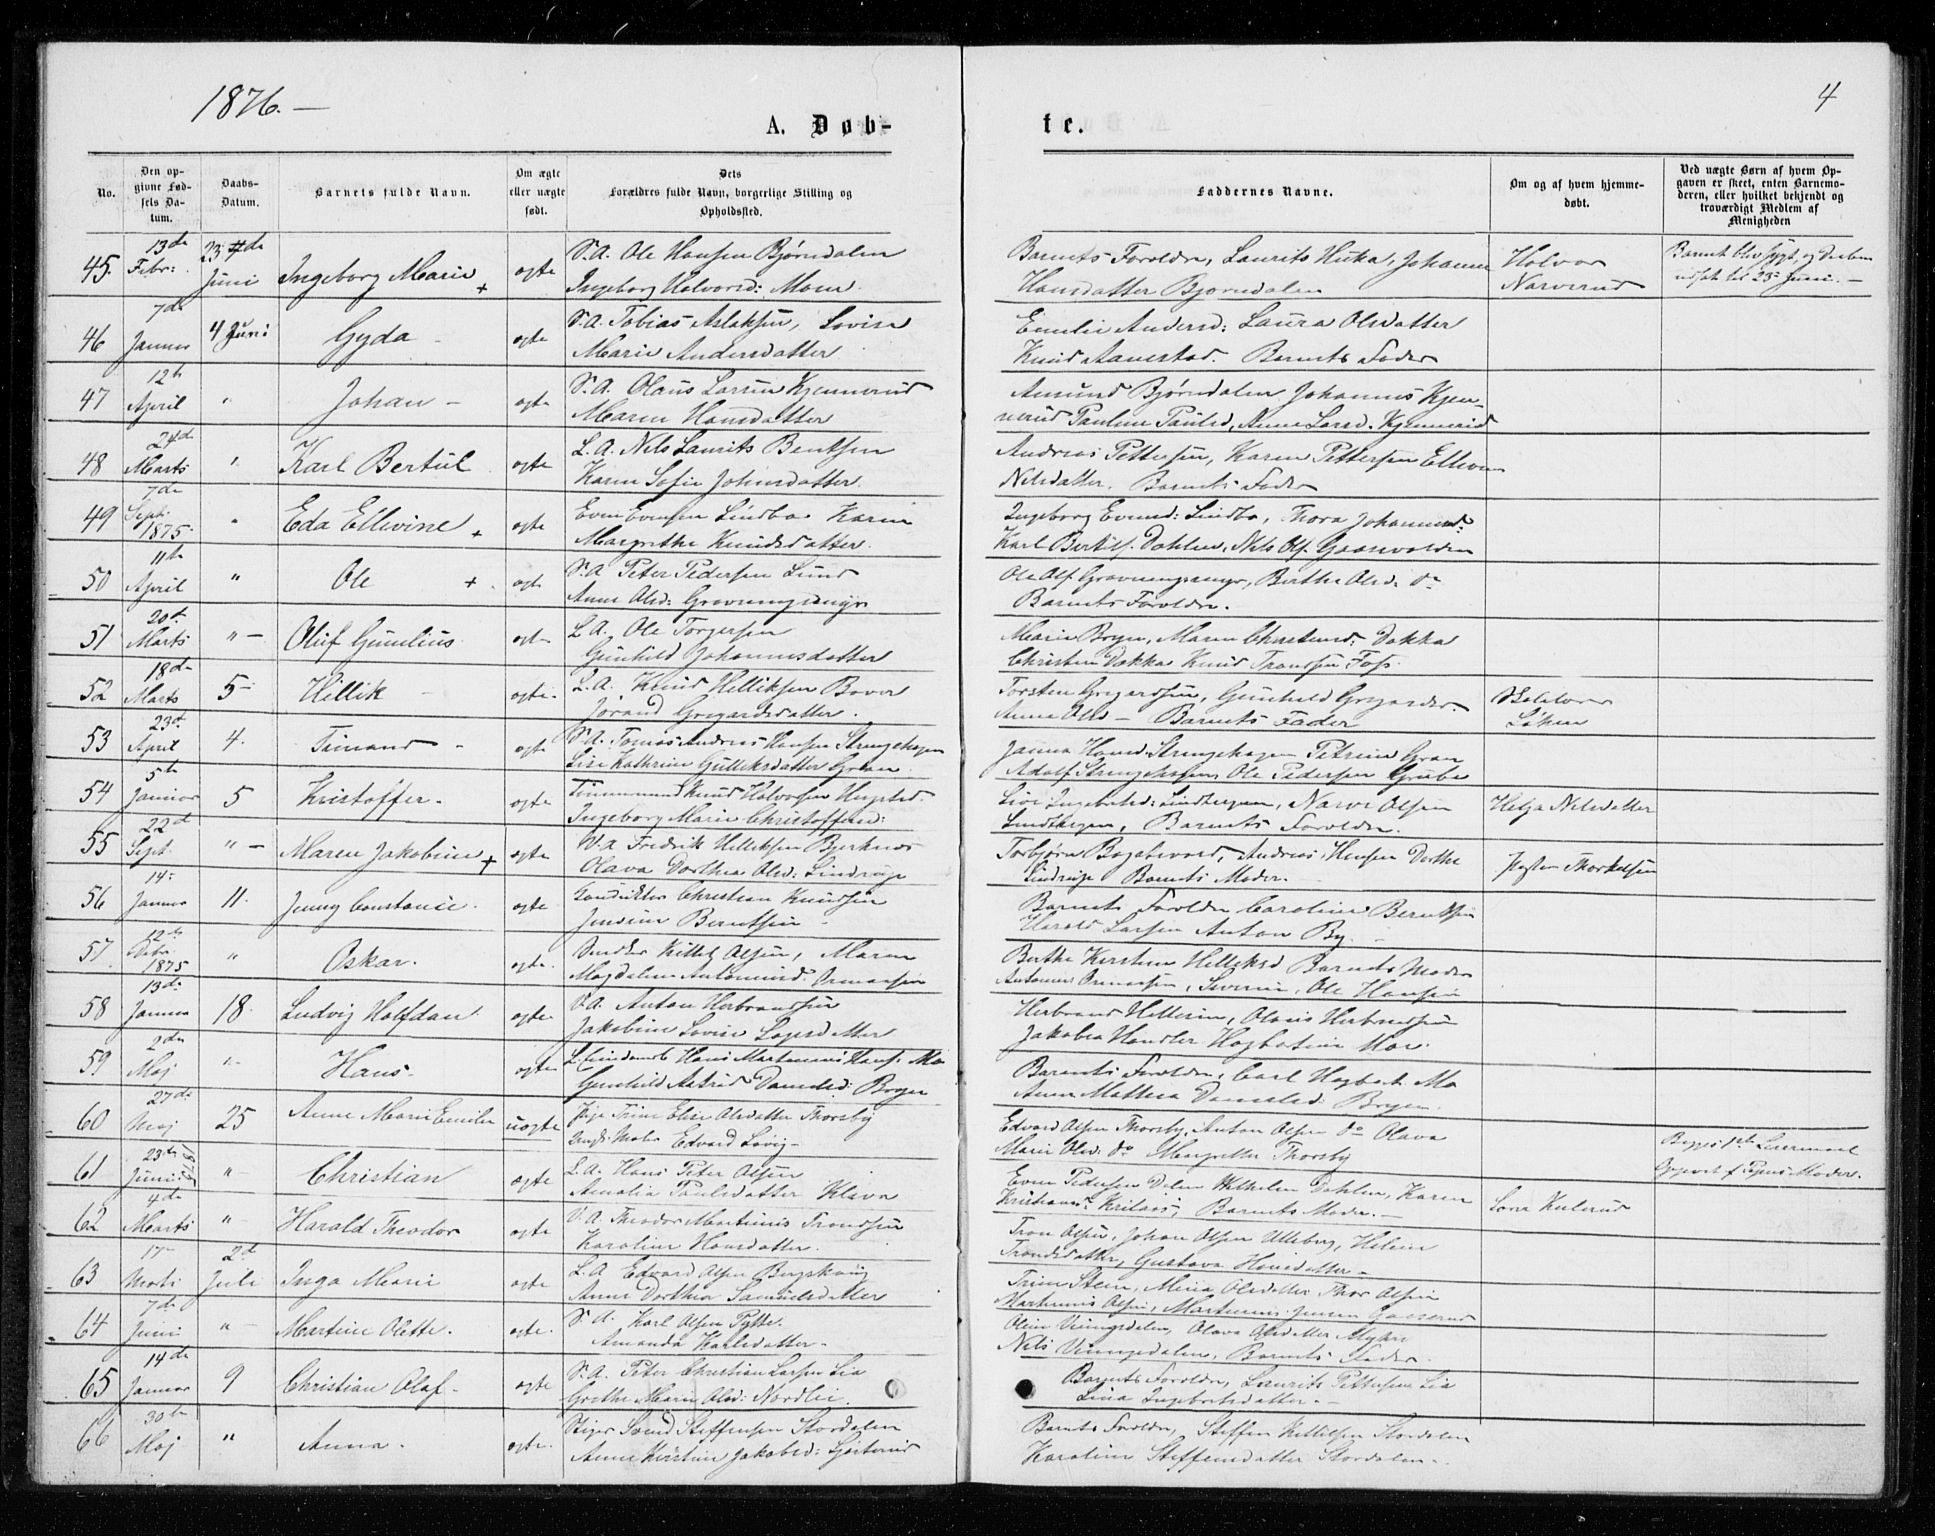 1876.—
4
A. Døb-
te.
No.
Den op-
givne Fød-
sels Da-
tum.
Daabs-
Datum.
Barnets fulde Navn.
Om ægte
eller uægte
født.
Dets
Forældres fulde Navn, borgerlige Stilling og
Opholdssted.
Faddernes Navne.
Om og af hvem hjemme-
døbt.
Ved uægte Børn af hvem Op-
gaven er skeet, enten Barnemo-
deren, eller hvilket bekjendt og
troværdigt Medlem af
Menigheden
45. 13de Febr: 23de Juni Ingeborg Marie + ægte
S.A. Ole Hansen Bjørndalen
Ingeborg Halvorsd: Moen
Barnets Foreldre, Laurits Huka, Johanne
Hansdatter Bjørndalen
Halvor
Narverud
Barnet blev sygt, og Daaben
udsat til 25 Juni.—
46 7de Januar 4 Juni Gyda – ægte
S.A. Tobias Aslaksen, Lovise
Marie Andersdatter
Emilie Andersd: Laura Olsdatter
Knud Aanestad. Barnets Fader
47 12te April " Johan – ægte
S.A. Olaus Larsen Kjennerud
Maren Hansdatter
Amund Bjørndalen Johannes Kjen-
nerud Pauline Paulsd, Anne Larsd. Kjennerud
48 24de Marts " Karl Bertul ægte
L.A. Nils Laurits Bentsen
Karen Sofie Johnsdatter
Andreas Pettersen, Karen Pettersen Elleven
Nilsdatter. Barnets Fader
49 7de Sept. 1875 " Eda Ellevine + ægte
Even Evensen Lindbo Karen
Margrethe Knudsdatter.
Ingeborg Evensd: Lindbo, Thora Johannesd:
Karl Bertils. Dahlen, Nils Ols.
50 11te April " Ole + ægte
S.A. Peter Pedersen Lund
Anne Olsd: Gravningsmyr
Ole Ols. Gravningsmyr, Berthe Olsd: do
Barnets Foreldre.
51 20de Marts " – Oluf Gunelius ægte
L.A. Ole Torgersen
Gunhild Johannesdatter
Marie Bryn, Maren Christensd: Dokka
Christen Dokka Knud Tronsen Foss.
52 18de Marts 5 – Hellik – ægte.
L.A. Knud Helliksen Bover
Jorand Gregardsdatter.
Torsten Gregardsen, Gunhild Gregardsd.
Anne Olsd – Barnets Fader
53 23de April 4. – ægte
S.A. Tomas Andreas Hansen Strengehagen
Lise Kathrine Gulliksdatter Gran.
Janna Hansd. Strengehagen Petrine Gran
Adolf Strengehagen, Ole Pedersen Grube
54 5te Januar 5 Kristoffer. – ægte
Tømmermand Knud Halvorsen
Ingeborg Marie Christoffersd:
Live Ingebretsd: Lindbergen, Narve Olsen
Lindbergen, Barnets Foreldre.
Helga Nilsdatter
55 22de Sept. " – Maren Jakobine + ægte
V.A. Fredrik Helliksen Bjerknes
Olava Dorthea Olsd:
Torbjørn, Andreas Hansen Dorthe
Barnets Moder.
Thorkelsen
56 14. Januar 11. Jenny Constance. ægte
Conduktør Christian Knudsen
Jensine Berntsen –
Barnets Foreldre Caroline Berntsen
Harald Larsen Anton By. –
57 12te 1875 " Oskar. ægte.
Snedker Kittel Olsen, Maren
Magdalene
Berthe Kirstine Helleksd Barnets Moder
Ole Hansen
58 13de Januar 18. Ludvig Halfdan ægte
V.A. Anton Herbrandsen
Jakobine Lovise
Herbrand Hellesen, Olaus Herbrandsen
Jakobea Handler Hagbatine Moe.
59 2den Maj " Hans. ægte
Hans Martinius Hans. Mo
Gunhild Astrid Danielsd: Bryn
Barnets Foreldre, Carl Hagbart Mo
Anne Mathea Danielsd: Bryn.
60 27de Maj 25 Anne Marie Emilie uægte
Pige Trine Elise Olsdatter Thorsby
Ungk: Maler Edvard Lovig –
Edvard Olsen Thorsby, Anton Olsen do Olava
Marie Olsd: do Margrethe Thorsby
Begges 1ste Leiermaal
Opgivet af Pigens Moder.
61 23de Juni 1875 " – Christian ægte
L.A. Hans Peter Olsen
Amalia Paulsdatter Kleva
Even Pedersen Dalen Wilhelm Dahlen, Karen
Barnets Moder. –
62 4de Marts " – Harald Theodor ægte
V.A. Theodor Martinius Trondsen
Karoline Hansdatter.
Tron Olsen, Johan Olsen Ulleberg, Helene
Trondsdatter, Gustava Hansdatter –
63 17 – Marts 2de Juli Inga Marie ægte
L.A. Edvard Olsen
Anne Dorthea Samuelsdatter
Trine Steen, Mina Olsdatter Thor Olsen
Martinius Olsen, Martinius Jensen
64 7de Juni " – Martine Olette. ægte.
S.A. Karl Olsen Pytte.
Amanda Karlsdatter –
Olava Olsdatter
Nils, Barnets Fader.
65 14de Januar 9 Christian Olaf – ægte
S.A. Peter Christian Larsen Lia
Grethe Marie Olsd: Nordlie.
Barnets Foreldre, Laurits Pettersen Lia
Lina Ingebretsdatter –
66 30te Maj " Anna. ægte.
Stiger Svend Steffensen Stordalen
Anne Kirstine Jakobsd:
Barnets Foreldre, Steffen Kittilsen Stordalen
Karoline Steffensdatter Stordalen.